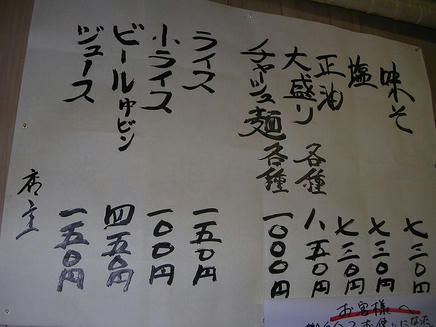 味そ 七三〇円
塩 七三〇円
正油 七三〇円
大盛り 各種 八五〇円
チャーシュー麺 各種 一〇〇〇円
ライス 一五〇円
小ライス 一〇〇円
ビール中ビン 四五〇円
ジュース 一五〇円
店主
お客様へ